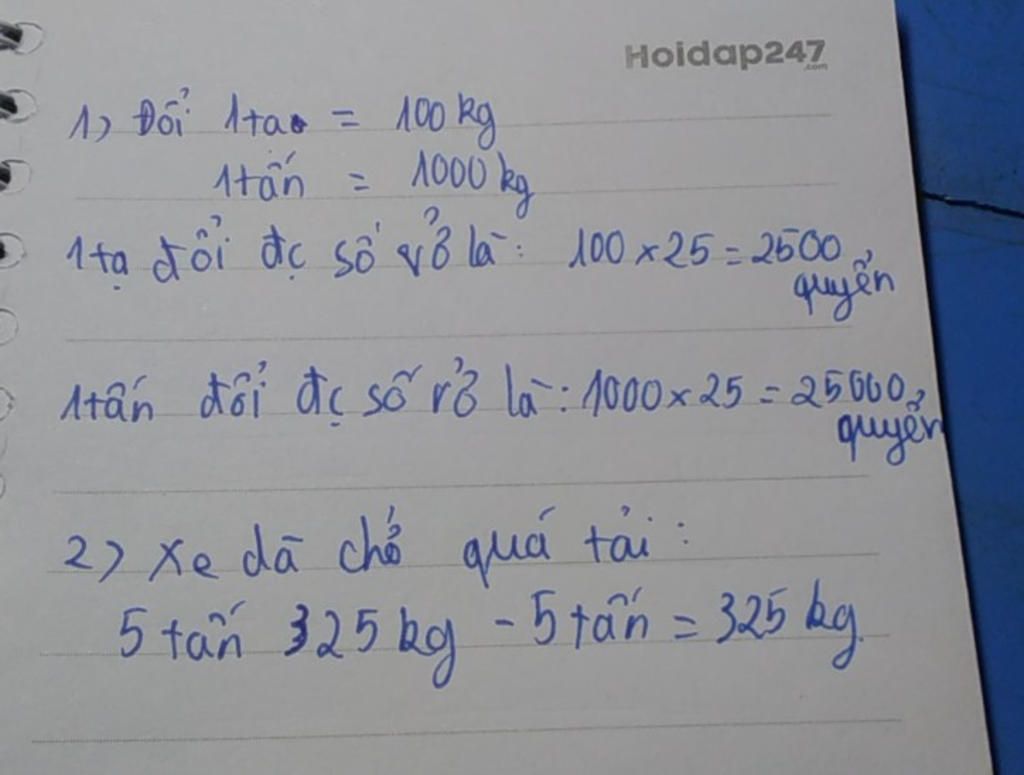 Hoidap247
.com
1) Đổi 1ta = 100 kg
1tấn = 1000 kg
1tạ đổi đc số vở là: 100 x 25 = 2500
quyển
1tấn đổi đc số vở là: 1000 x 25 = 25000
quyển
2) Xe dã chở quá tải:
5 tấn 325 kg - 5 tấn = 325 kg